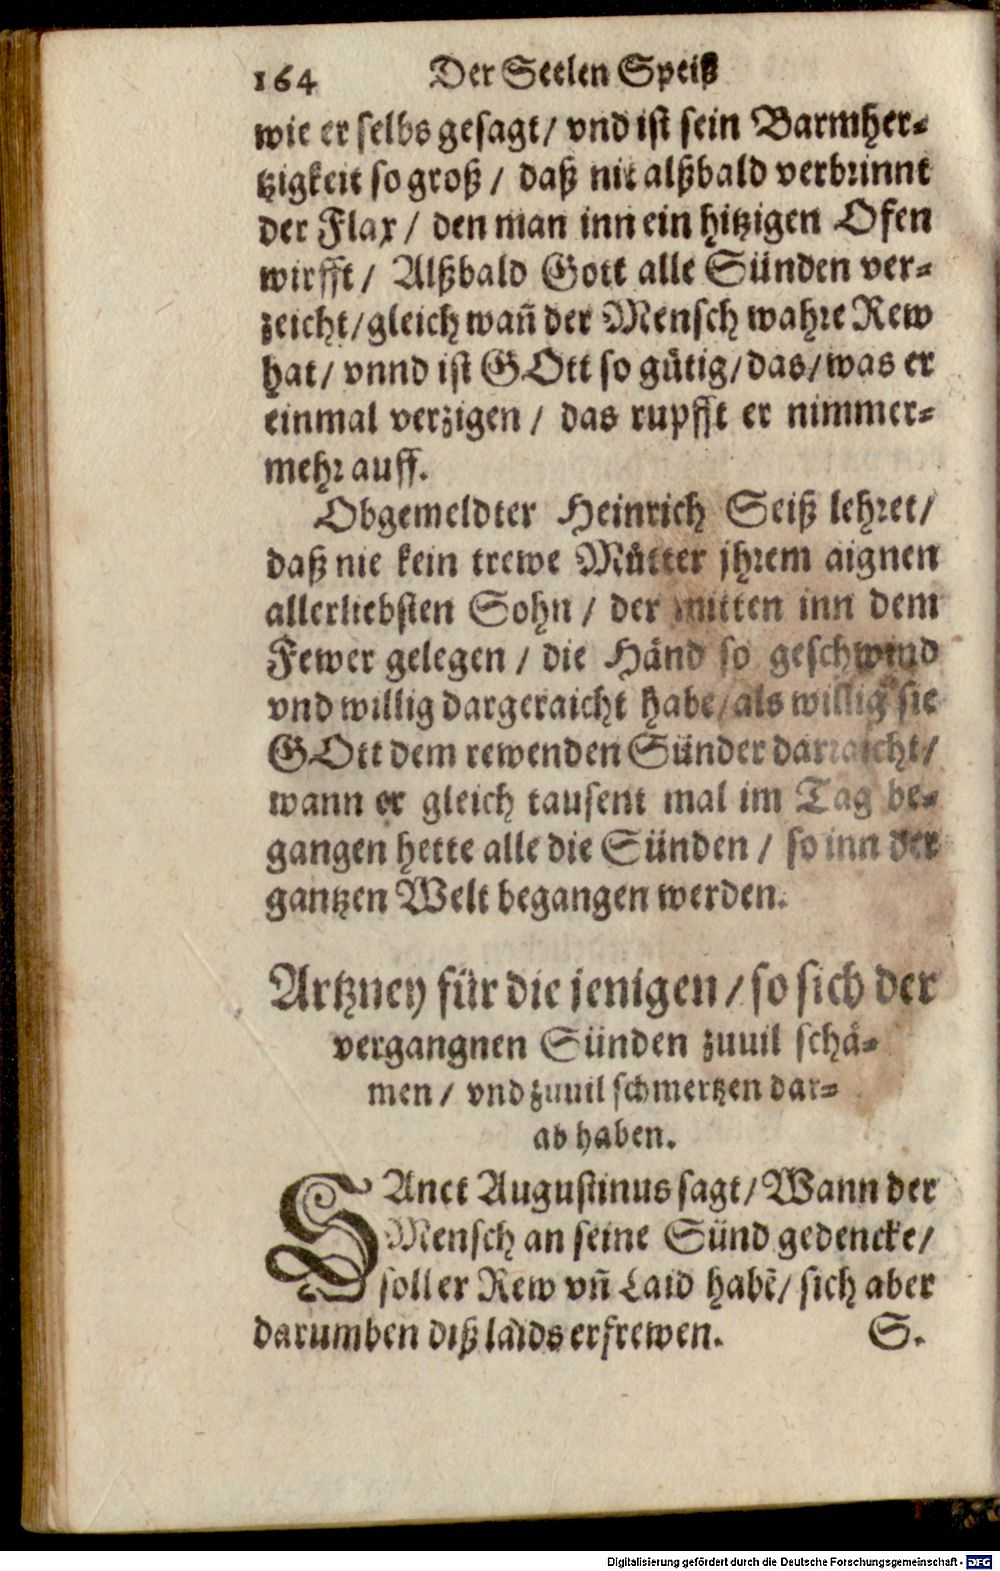 164 Der Seelen Speiß
wie er selbs gesagt/ vnd ist sein Barmher-
tzigkeit so groß / daß nit alßbald verbrinnt
der Flax / den man inn ein hitzigen Ofen
wirfft / Alßbald Gott alle Sünden ver-
zeicht/gleich wañ der Mensch wahre Rew
hat/ vnnd ist GOtt so gütig/das/was er
einmal verzigen / das rupfft er nimmer-
mehr auff.
Obgemeldter Heinrich Seiß lehret/
daß nie kein trewe Můtter jhrem aignen
allerliebsten Sohn / der mitten inn dem
Fewer gelegen / die Händ so geschwind
vnd willig dargeraicht habe/als willig sie
GOtt dem rewenden Sünder darraicht/
wann er gleich tausent mal im Tag be-
gangen hette alle die Sünden / so inn der
gantzen Welt begangen werden.
Artzney für die jenigen / so sich der
vergangnen Sünden zuuil schä-
men / vnd zuuil schmertzen dar-
ab haben.
SAnct Augustinus sagt/ Wann der
Mensch an seine Sünd gedencke/
soll er Rew vñ Laid habẽ/ sich aber
darumben diß laids erfrewen. S.
Digitalisierung gefördert durch die Deutsche Forschungsgemeinschaft - DFG